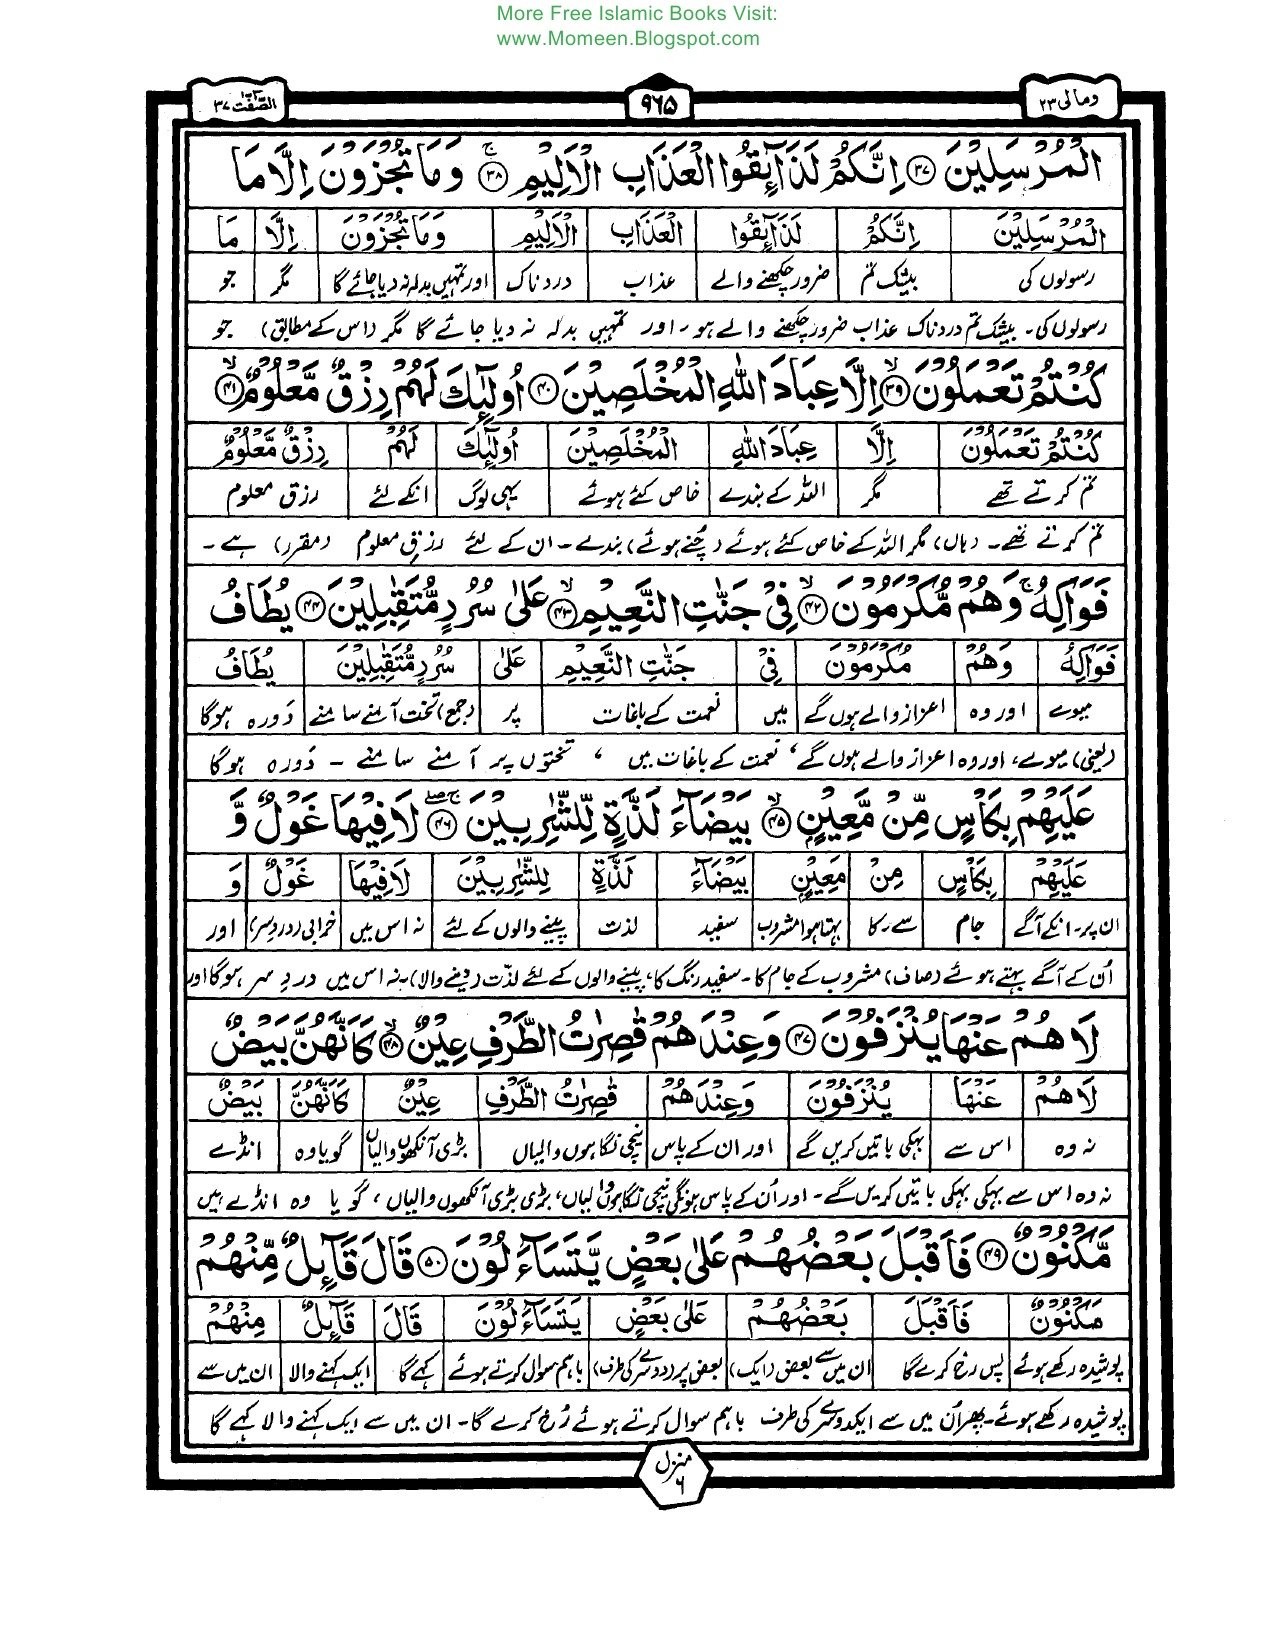 More Free Islamic Books Visit:
www.Momeen.Blogspot.com
ومالی ۲۳
۹۶۵
الصّٰفّٰت ۳۷
الْمُرْسَلِیْنَ ﴿۳۷﴾ اِنَّكُمْ لَذَآىِٕقُوا الْعَذَابِ الْاَلِیْمِ ﴿۳۸﴾ۚ وَمَا تُجْزَوْنَ اِلَّا مَا
الْمُرْسَلِیْنَ اِنَّكُمْ لَذَآىِٕقُوا الْعَذَابِ الْاَلِیْمِ وَمَا تُجْزَوْنَ اِلَّا مَا
رسولوں کی بیشک تم ضرور چکھنے والے عذاب دردناک اور تمہیں بدلہ نہ دیا جائے گا مگر جو
رسولوں کی۔ بیشک تم دردناک عذاب ضرور چکھنے والے ہو، اور تمہیں بدلہ نہ دیا جائے گا مگر (اس کے مطابق) جو
كُنْتُمْ تَعْمَلُوْنَ ﴿۳۹﴾ۙ اِلَّا عِبَادَ اللّٰهِ الْمُخْلَصِیْنَ ﴿۴۰﴾ اُولٰٓىِٕكَ لَهُمْ رِزْقٌ مَّعْلُوْمٌ ﴿۴۱﴾ۙ
كُنْتُمْ تَعْمَلُوْنَ اِلَّا عِبَادَ اللّٰهِ الْمُخْلَصِیْنَ اُولٰٓىِٕكَ لَهُمْ رِزْقٌ مَّعْلُوْمٌ
تم کرتے تھے مگر اللہ کے بندے خاص کئے ہوئے یہی لوگ انکے لئے رزق معلوم
تم کرتے تھے۔ (ہاں) مگر اللہ کے خاص کئے ہوئے (چُنے ہوئے) بندے۔ ان کے لئے رزقِ معلوم (مقرر) ہے۔
فَوَاكِهُ ۚ وَهُمْ مُّكْرَمُوْنَ ﴿۴۲﴾ۙ فِیْ جَنّٰتِ النَّعِیْمِ ﴿۴۳﴾ۙ عَلٰی سُرُرٍ مُّتَقٰبِلِیْنَ ﴿۴۴﴾ یُطَافُ
فَوَاكِهُ وَهُمْ مُكْرَمُوْنَ فِیْ جَنّٰتِ النَّعِیْمِ عَلٰی سُرُرٍ مُّتَقٰبِلِیْنَ یُطَافُ
میوے اور وہ اعزاز والے ہوں گے میں نعمت کے باغات پر (جمع) تخت آمنے سامنے دَورہ ہوگا
(یعنی) میوے، اور وہ اعزاز والے ہوں گے، نعمت کے باغات میں ، تختوں پر آمنے سامنے۔ دَورہ ہوگا
عَلَیْهِمْ بِكَاْسٍ مِّنْ مَّعِیْنٍۭ ﴿۴۵﴾ۙ بَیْضَآءَ لَذَّةٍ لِّلشّٰرِبِیْنَ ﴿۴۶﴾ۚۖ لَا فِیْهَا غَوْلٌ وَّ
عَلَیْهِمْ بِكَاْسٍ مِنْ مَعِیْنٍ بَیْضَآءَ لَذَّةٍ لِلشّٰرِبِیْنَ لَا فِیْهَا غَوْلٌ وَ
ان پر۔ انکے آگے جام سے۔ کا بہتا ہوا مشروب سفید لذت پینے والوں کے لئے نہ اس میں خرابی (دردِ سر) اور
اُن کے آگے بہتے ہوئے (صاف) مشروب کے جام کا۔ سفید رنگ کا، پینے والوں کے لئے لذّت (دینے والا)۔ نہ اس میں دردِ سر ہوگا اور
لَا هُمْ عَنْهَا یُنْزَفُوْنَ ﴿۴۷﴾ وَعِنْدَهُمْ قٰصِرٰتُ الطَّرْفِ عِیْنٌ ﴿۴۸﴾ۙ كَاَنَّهُنَّ بَیْضٌ
لَا هُمْ عَنْهَا یُنْزَفُوْنَ وَعِنْدَهُمْ قٰصِرٰتُ الطَّرْفِ عِیْنٌ كَاَنَّهُنَّ بَیْضٌ
نہ وہ اس سے بہکی باتیں کریں گے اور ان کے پاس نیچی نگاہوں والیاں بڑی آنکھوں والیاں گویا وہ انڈے
نہ وہ اس سے بہکی بہکی باتیں کریں گے۔ اور اُن کے پاس ہونگی نیچی نگاہوں والیاں، بڑی بڑی آنکھوں والیاں، گویا وہ انڈے ہیں
مَّكْنُوْنٌ ﴿۴۹﴾ فَاَقْبَلَ بَعْضُهُمْ عَلٰی بَعْضٍ یَّتَسَآءَلُوْنَ ﴿۵۰﴾ قَالَ قَآىِٕلٌ مِّنْهُمْ
مَكْنُوْنٌ فَاَقْبَلَ بَعْضُهُمْ عَلٰی بَعْضٍ یَتَسَآءَلُوْنَ قَالَ قَآىِٕلٌ مِنْهُمْ
پوشیدہ رکھے ہوئے پس رخ کرے گا ان میں سے بعض (ایک) بعض پر (دوسرے کی طرف) باہم سوال کرتے ہوئے کہے گا ایک کہنے والا ان میں سے
پوشیدہ رکھے ہوئے۔ پھر اُن میں سے ایک دوسرے کی طرف باہم سوال کرتے ہوئے رُخ کرے گا۔ ان میں سے ایک کہنے والا کہے گا
منزل ۶